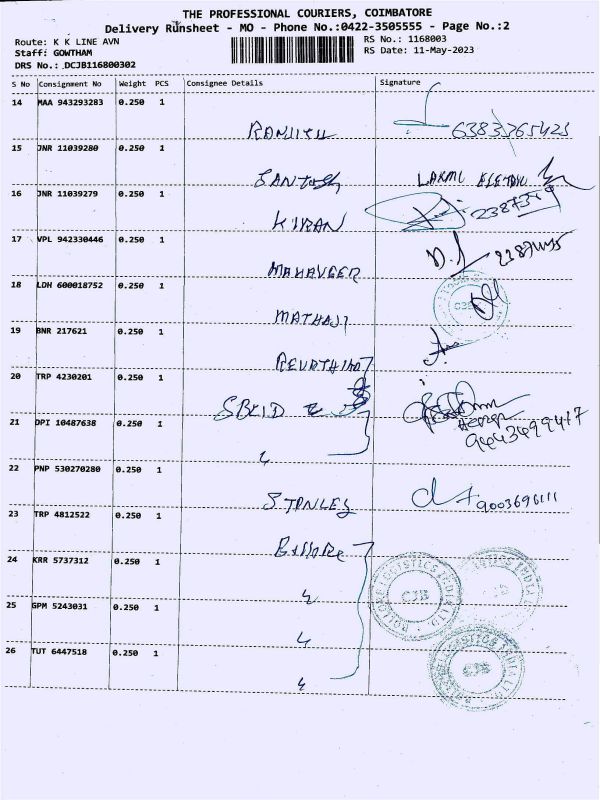 THE PROFESSIONAL COURIERS, COIMBATORE
Delivery Runsheet - MO - Phone No.:0422-3505555 - Page No.:2
Route: K K LINE AVN
Staff: GOWTHAM
DRS No.: DCJB116800302
RS No.: 1168003
RS Date: 11-May-2023
S No Consignment No Weight PCS Consignee Details Signature
14 MAA 943293283 0.250 1
RANJITH
15 JNR 11039280 0.250 1
SANTOSH LAXMI
16 JNR 11039279 0.250 1
KIRAN
17 VPL 942330446 0.250 1
MAHAVEER
18 LDH 600018752 0.250 1
MATHAJI
19 BNR 217621 0.250 1
20 TRP 4230201 0.250 1
21 DPI 10487638 0.250 1
9443499417
22 PNP 530270280 0.250 1
STANLEY 9003696111
23 TRP 4812522 0.250 1
24 KRR 5737312 0.250 1
25 GPM 5243031 0.250 1
26 TUT 6447518 0.250 1
CJB